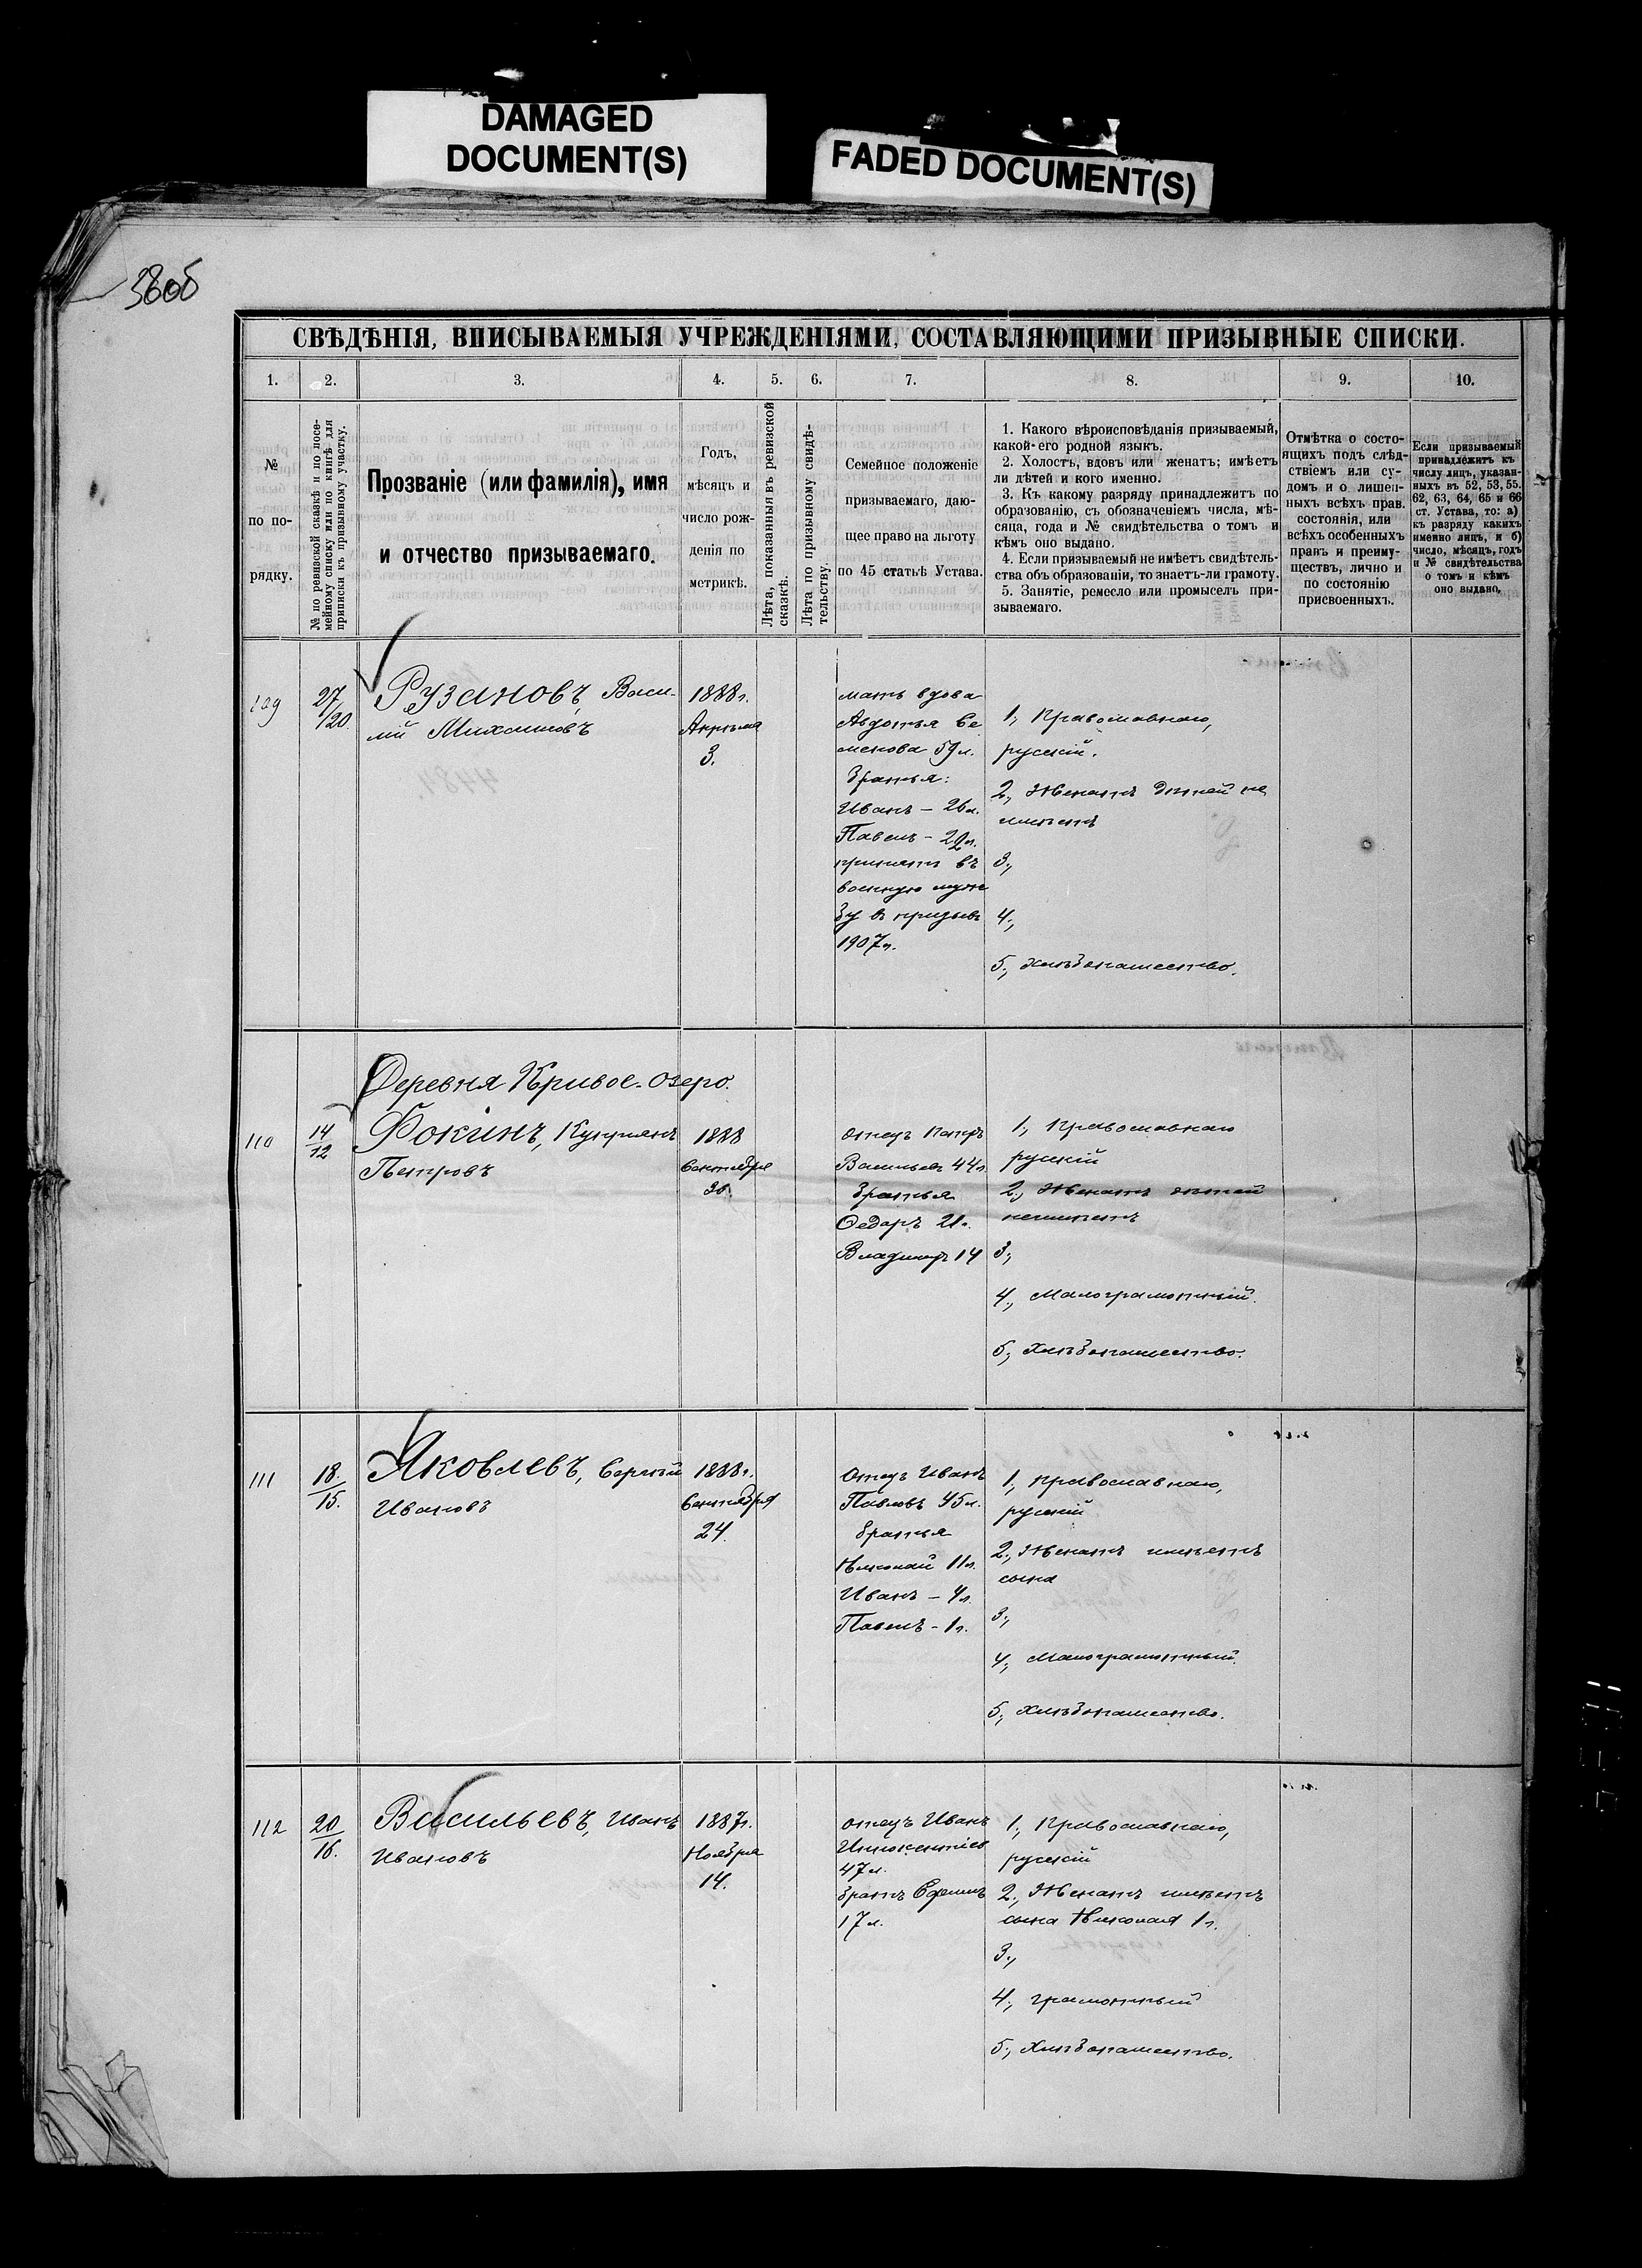 DAMAGED
DOCUMENT(S)
FADED DOCUMENT(S)
38об
СВѢДѢНІЯ, ВПИСЫВАЕМЫЯ УЧРЕЖДЕНІЯМИ, СОСТАВЛЯЮЩИМИ ПРИЗЫВНЫЕ СПИСКИ.
1. 2. 3. 4. 5. 6. 7. 8. 9. 10.
№
по по-
рядку.
№ по ревизской сказкѣ и по посе-
мейному списку или по книгѣ для
приписки къ призывному участку.
Прозваніе (или фамилія), имя
и отчество призываемаго.
Годъ,
мѣсяцъ и
число рож-
денія по
метрикѣ.
Лѣта, показанныя въ ревизской
сказкѣ.
Лѣта по призывному свидѣ-
тельству.
Семейное положеніе
призываемаго, даю-
щее право на льготу
по 45 статьѣ Устава.
1. Какого вѣроисповѣданія призываемый,
какой его родной языкъ.
2. Холостъ, вдовъ или женатъ; имѣетъ
ли дѣтей и кого именно.
3. Къ какому разряду принадлежитъ по
образованію, съ обозначеніемъ числа, мѣ-
сяца, года и № свидѣтельства о томъ и
кѣмъ оно выдано.
4. Если призываемый не имѣетъ свидѣтель-
ства объ образованіи, то знаетъ-ли грамоту.
5. Занятіе, ремесло или промыселъ при-
зываемаго.
Отмѣтка о состо-
ящихъ подъ слѣд-
ствіемъ или су-
домъ и о лишен-
ныхъ всѣхъ прав.
состоянія, или
всѣхъ особенныхъ
правъ и преиму-
ществъ, лично и
по состоянію
присвоенныхъ.
Если призываемый
принадлежитъ къ
числу лицъ, указан-
ныхъ въ 52, 53, 55.
62, 63, 64, 65 и 66
ст. Устава, то: а)
къ разряду какихъ
именно лицъ, и б)
число, мѣсяцъ, годъ
и № свидѣтельства
о томъ и кѣмъ
оно выдано.
109
27/20
Рузановъ, Васи-
лій Михаиловъ
1888г.
Апрѣля
3.
мать вдова
Авдотья Се
менова 59л.
братья:
Иванъ – 26л.
Павелъ – 22л.
принятъ въ
военную служ
бу въ призывъ
1907г.
1., Православнаго,
русскій.
2., Женатъ дѣтей не
имѣетъ
3.,
4.,
5., Хлѣбопашество.
Деревня Кривое-озеро.
110
14/12
Фокинъ, Купріянъ
Петровъ
1888
Сентября
26.
отецъ Петръ
Васильевъ 44л.
братья
Федоръ 21л.
Владимръ 14
1., Православнаго
русскій
2., Женатъ дѣтей
неимѣетъ
3.,
4., Малограмотный.
5., Хлѣбопашество.
111
18./15.
Яковлевъ, Сергѣй
Ивановъ
1888г.
Сентября
24.
Отецъ Иванъ
Павловъ 45л.
братья
Николай 11л.
Иванъ – 4л.
Павелъ – 1г.
1., православнаго,
русскій
2., Женатъ имѣетъ
сына
3.,
4., Малограмотный.
5., Хлѣбопашество.
112
20/16.
Васильевъ, Иванъ
Ивановъ
1887г.
Ноября
14.
отецъ Иванъ
Инокентіев
47л.
братъ Ефимъ
17л.
1., Православнаго,
русскій
2., Женатъ имѣетъ
сына Николая 1г.
3.,
4., грамотный
5., Хлѣбопашество.